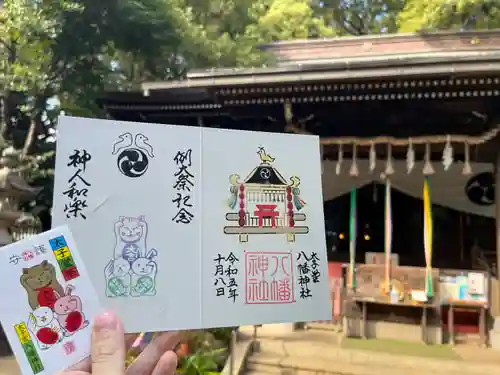 例大祭記念
神人和楽
太子堂
八幡神社
令和五年
十月八日
八幡
神社
太子堂